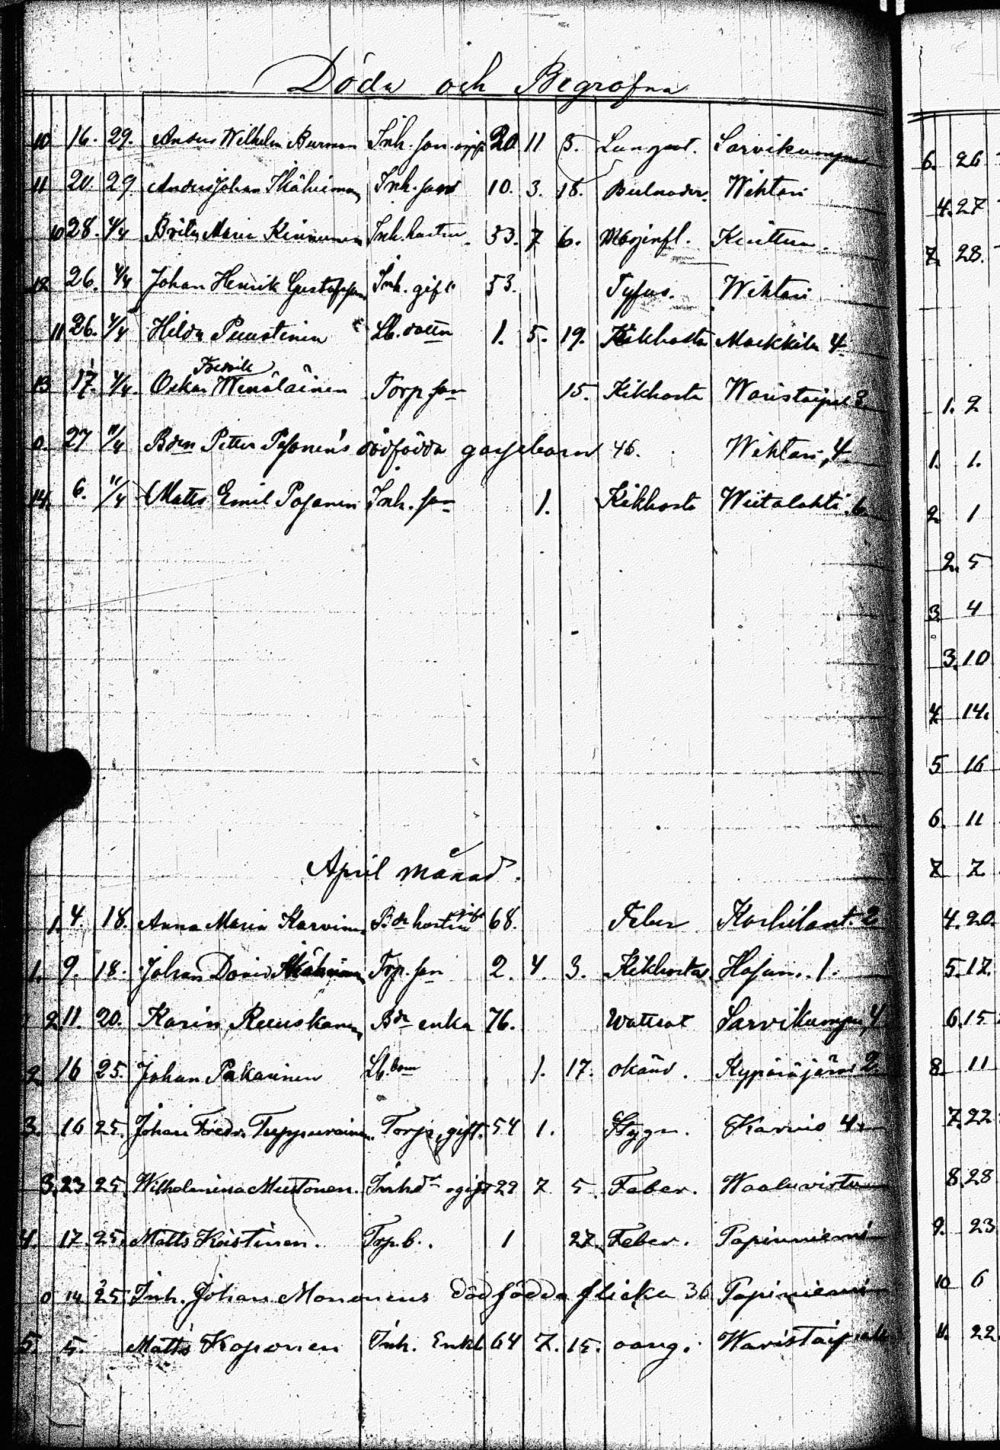 Döda och Begrafna
10 16. 29. Anders Wilhelm Burman Inh. son ogift 20 11 3. Lungsot. Sarvikumpu
11 20 29 Anders Johan Inh. son 10. 3. 18. Wihtari
10 28. 4/4 Brita Maria Kinnunen Inh. hustru 53. 7 6. Kiuttu
12 26. 4/4 Johan Henrik Gustafsson Inh. gift 53. Tyfus. Wihtari
11 26. 4/4 Hilda Puustinen Lb. dotter 1. 5. 19. Kikhosta Markkila 4
13 17. 4/4. Oskar Fredrik Wenäläinen Torp. son 15. Kikhosta Waristaipal 3
0. 27 11/4 Bden Petter Pesonens dödfödda gossebarn 46. Wihtari, 4.
14. 6. 11/4 Matts Emil Posanen Inh. son 1. Kikhosta Wiitalahti. 6
April månad.
1. 4. 18. Anna Maria Karvinen Bde hustru gift 68. Feber 2
1. 9. 18. Johan David Torp. son 2. 4. 3. Kikhosta 1.
2 11. 20. Karin Ruuskanen Bde enka 76. Wattsot Sarvikumpu 4
2 16 25. Johan Pakarinen Lb. son 1. 17. okänd. Kypäräjärvi 2.
3. 16 25. Johan Fredr. Tuppurainen. Torp. gift. 54 1. Stygn. Karvio 4
3. 23 25. Wilhelmina Miettonen. Inhd ogift 29 7 5 Feber. Waaluvirta
4. 17. 25. Matts Koistinen. Torp. b. 1 27. Feber. Papinniemi
0 14 25 Inh. Johan Monon​ens dödfödda flicka 36 Papinniemi
5 5. Matts Koponen Inh. Enkl 64 7. 15. oang. Waristaipale
6. 26
4. 27
7. 28.
1. 2
1. 1.
2. 1
2. 5
3. 4
3. 10
4 14.
5 16
6. 11
7 7
4. 20.
5 17.
6. 15
8. 11
7. 22
8. 28
9. 23
10 6
11. 22